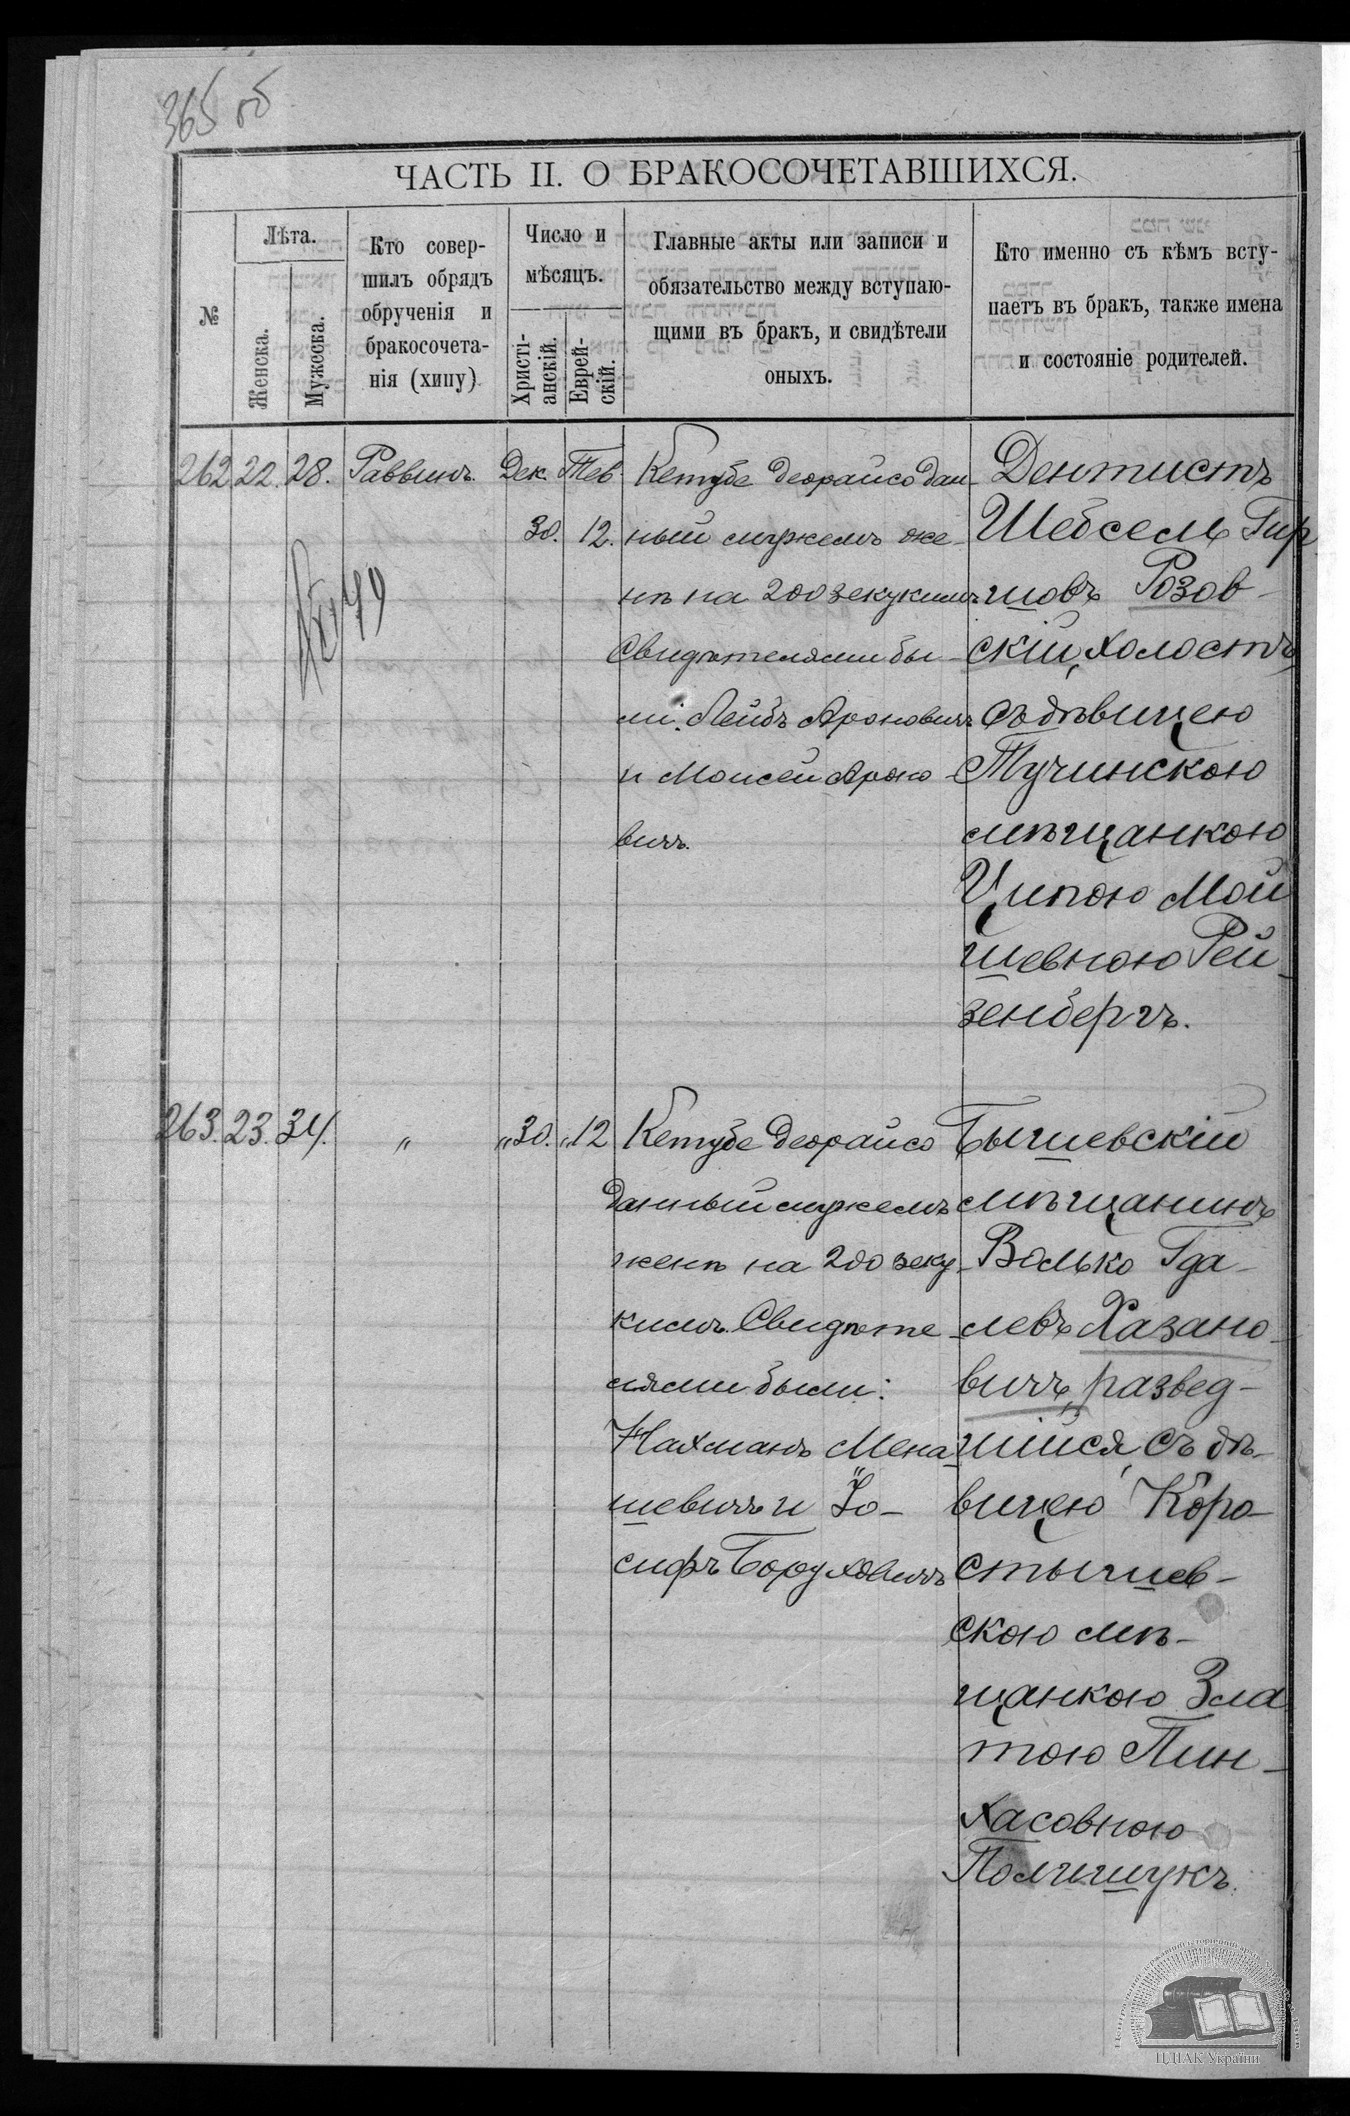 365 об
ЧАСТЬ II. О БРАКОСОЧЕТАВШИХСЯ.
№
Лѣта.
Женска.
Мужеска.
Кто совер-
шилъ обрядъ
обрученія и
бракосочета-
нія (хипу)
Число и
мѣсяцъ.
Христі-
анскій.
Еврей-
скій.
Главные акты или записи и
обязательство между вступаю-
щими въ бракъ, и свидѣтели
оныхъ.
Кто именно съ кѣмъ всту-
паетъ въ бракъ, также имена
и состояніе родителей.
262 22. 28. Раввинъ. Дек. Тев.
30. 12.
Кетубе деорайсо дан-
ный мужемъ же-
нѣ на 200 зекукимъ
Свидѣтелями бы-
ли: Лейбъ Ароновичъ
и Моисей Ароно-
вичъ.
Дентистъ
Шебсель Гир
шовъ Розов-
скій, холостъ,
съ дѣвицею
Тучинскою
мѣщанкою
Ципою Мой
шевною Рей-
зенбергъ.
263. 23. 34. " "30. "12
Кетубе деорайсо
данный мужемъ
женѣ на 200 зеку-
кимъ. Свидѣте-
лями были:
Нахманъ Мена-
шевичъ и Іо-
сифъ Боруховичъ
Бышевскій
мѣщанинъ
Волько Гда-
левъ Хазано-
вичъ, развед-
шійся, съ дѣ-
вицею Коро-
стышев-
скою мѣ-
щанкою Зла
тою Пин-
хасовною
Полишукъ.
ЦДІАК України